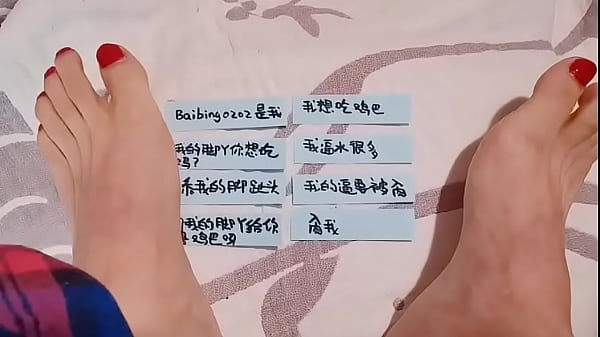 Baibing0202是我
我的脚丫你想吃
吗?
我的脚趾头
我的脚丫给你
鸡巴吗
我想吃鸡巴
我逼水很多
我的逼要被肏
肏我